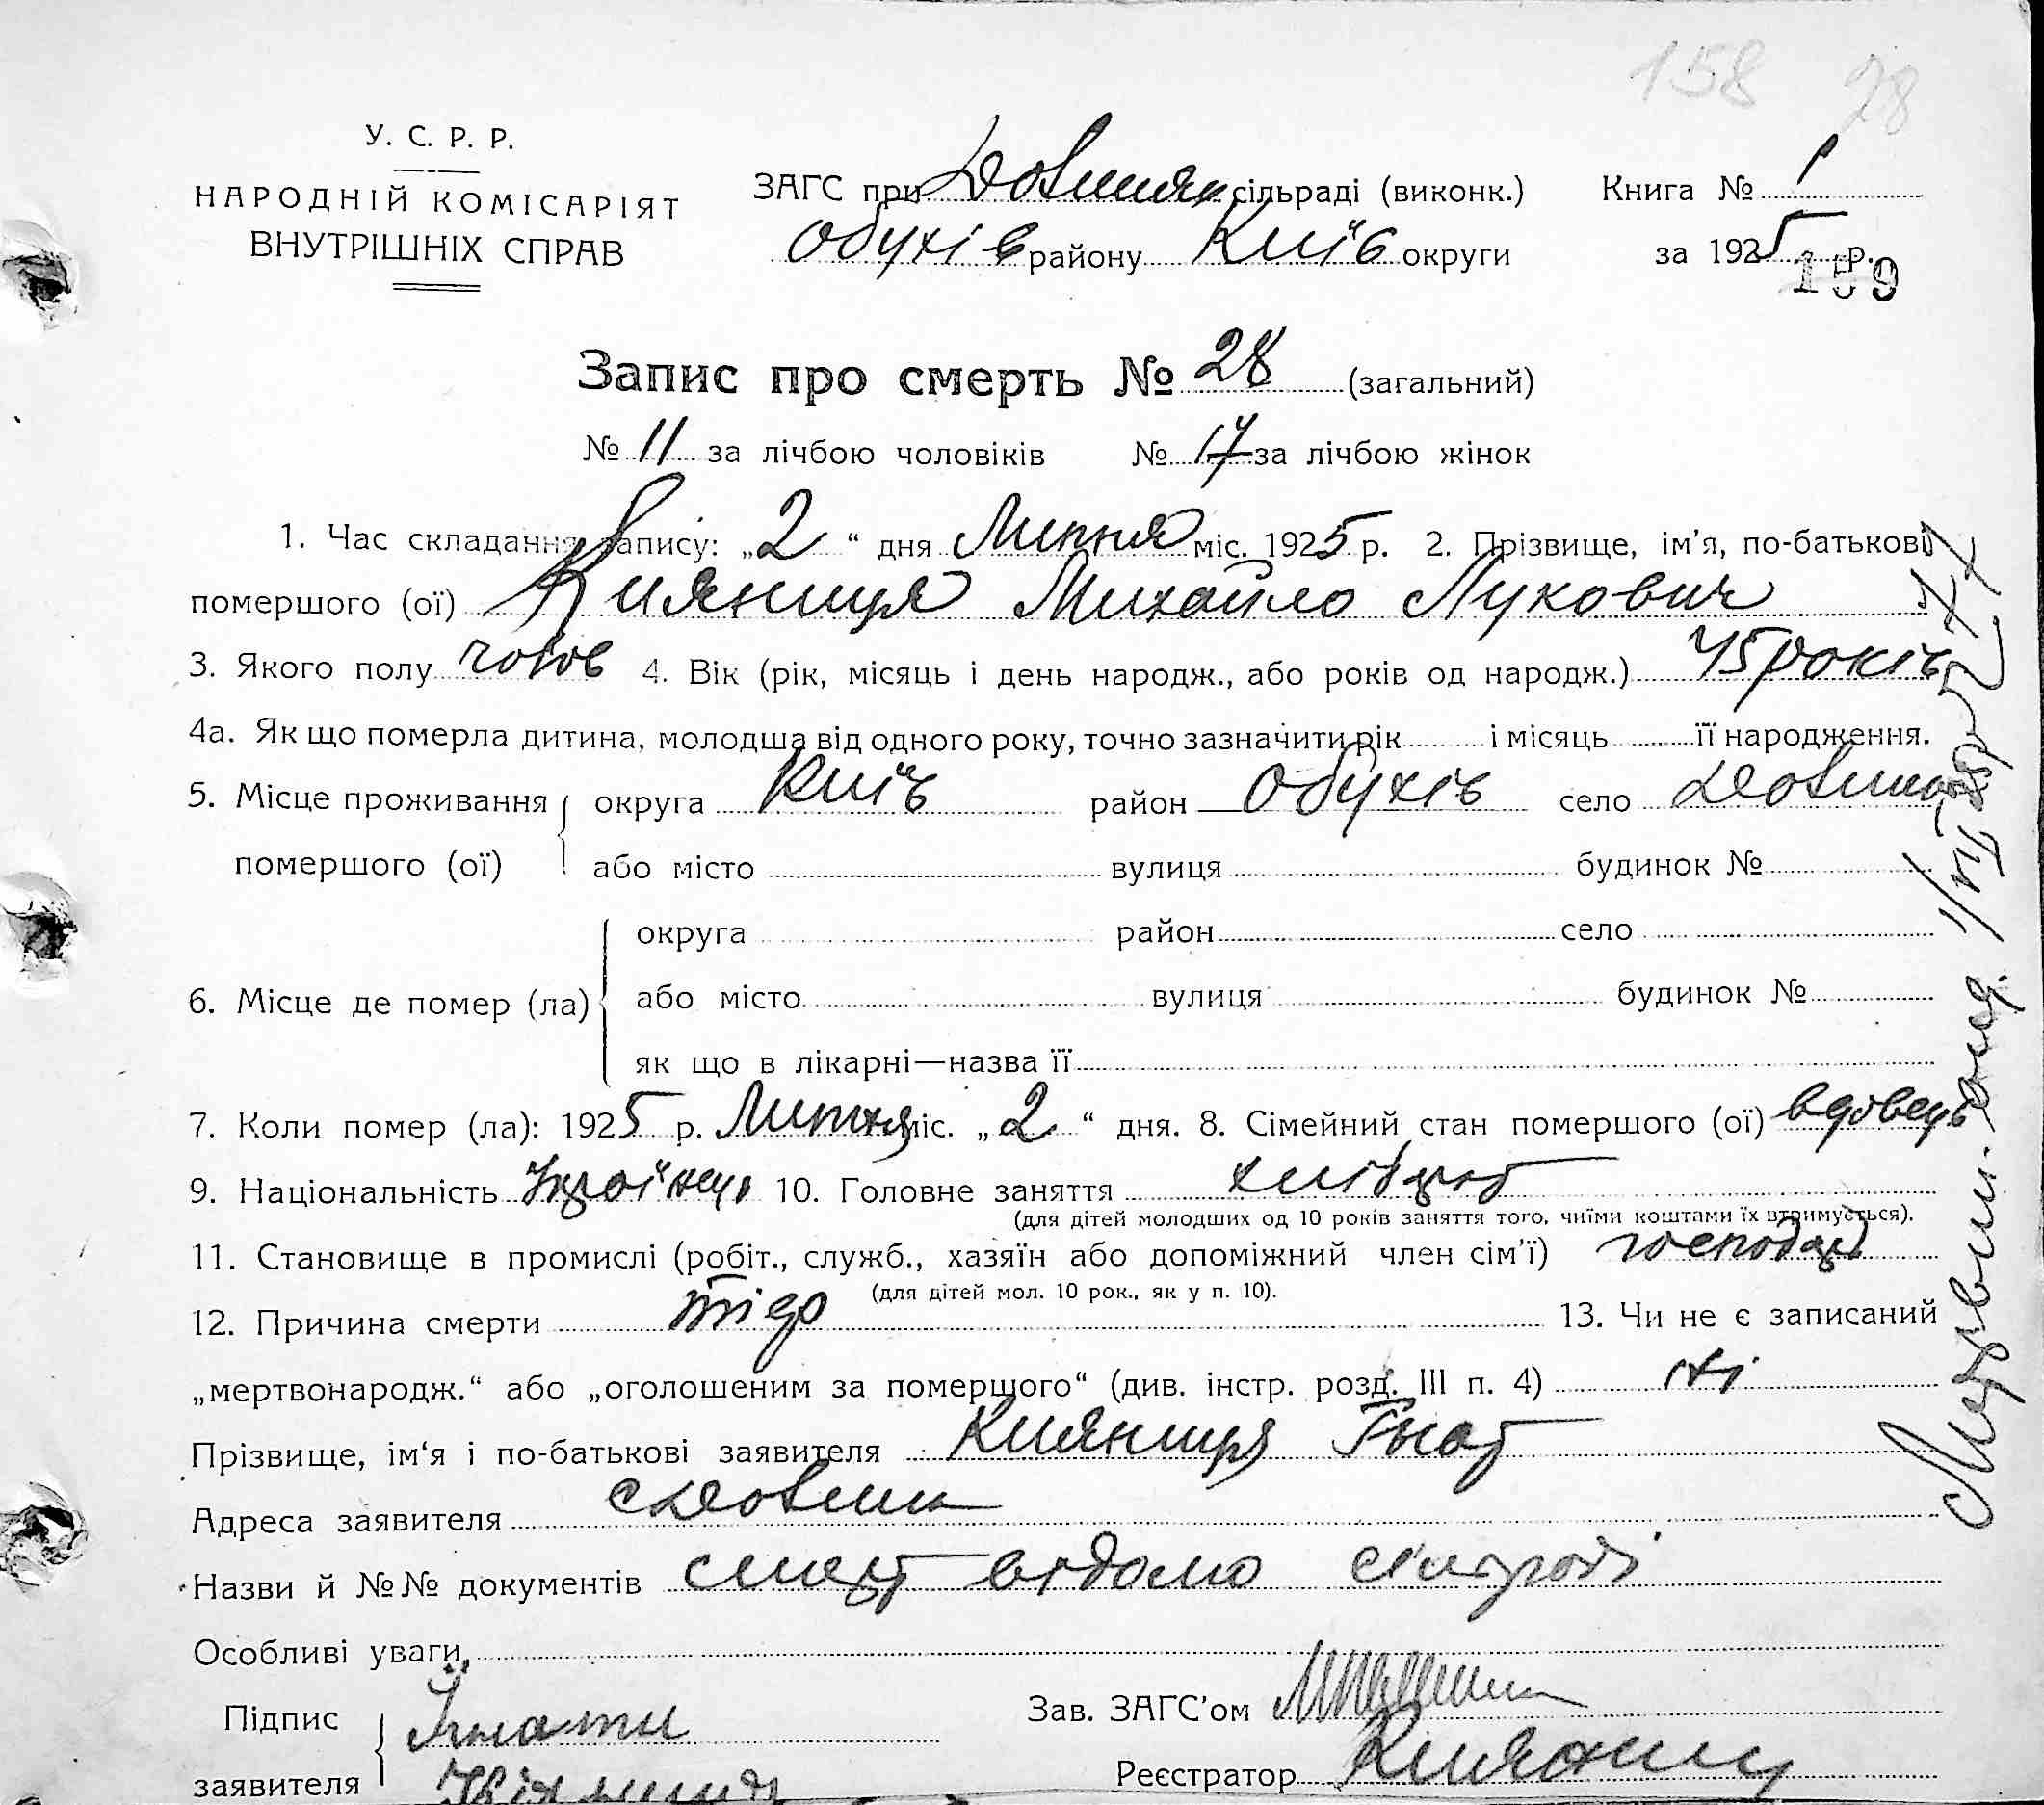 158 28
У. С. Р. Р.
НАРОДНІЙ КОМІСАРІЯТ
ВНУТРІШНІХ СПРАВ
ЗАГС при сільраді (виконк.) Книга № 1
Обухів району Київ округи за 1925 р.
159
Запис про смерть № 28 (загальний)
№ 11 за лічбою чоловіків № 17 за лічбою жінок
1. Час складання запису: „2“ дня Липня міс. 1925 р. 2. Прізвище, ім’я, по-батькові
помершого (ої) Кияниця Михайло Лукович
3. Якого полу чолов 4. Вік (рік, місяць і день народж., або років од народж.) 45 років
4а. Як що померла дитина, молодша від одного року, точно зазначити рік і місяць її народження.
5. Місце проживання округа Київ район Обухів село
помершого (ої) або місто вулиця будинок №
округа район село
6. Місце де помер (ла) або місто вулиця будинок №
як що в лікарні—назва її
7. Коли помер (ла): 1925 р. Липня міс. „2“ дня. 8. Сімейний стан помершого (ої) вдовець
9. Національність Українець 10. Головне заняття хлібороб
(для дітей молодших од 10 років заняття того, чиїми коштами їх втримується).
11. Становище в промислі (робіт., служб., хазяїн або допоміжний член сім’ї) господар
(для дітей мол. 10 рок., як у п. 10).
12. Причина смерти 13. Чи не є записаний
„мертвонародж.“ або „оголошеним за помершого“ (див. інстр. розд. III п. 4) ні
Прізвище, ім‘я і по-батькові заявителя Кияниця Гнат
Адреса заявителя
Назви й №№ документів смерт відомо сілраді
Особливі уваги
Підпис Зав. ЗАГС’ом
заявителя Реєстратор